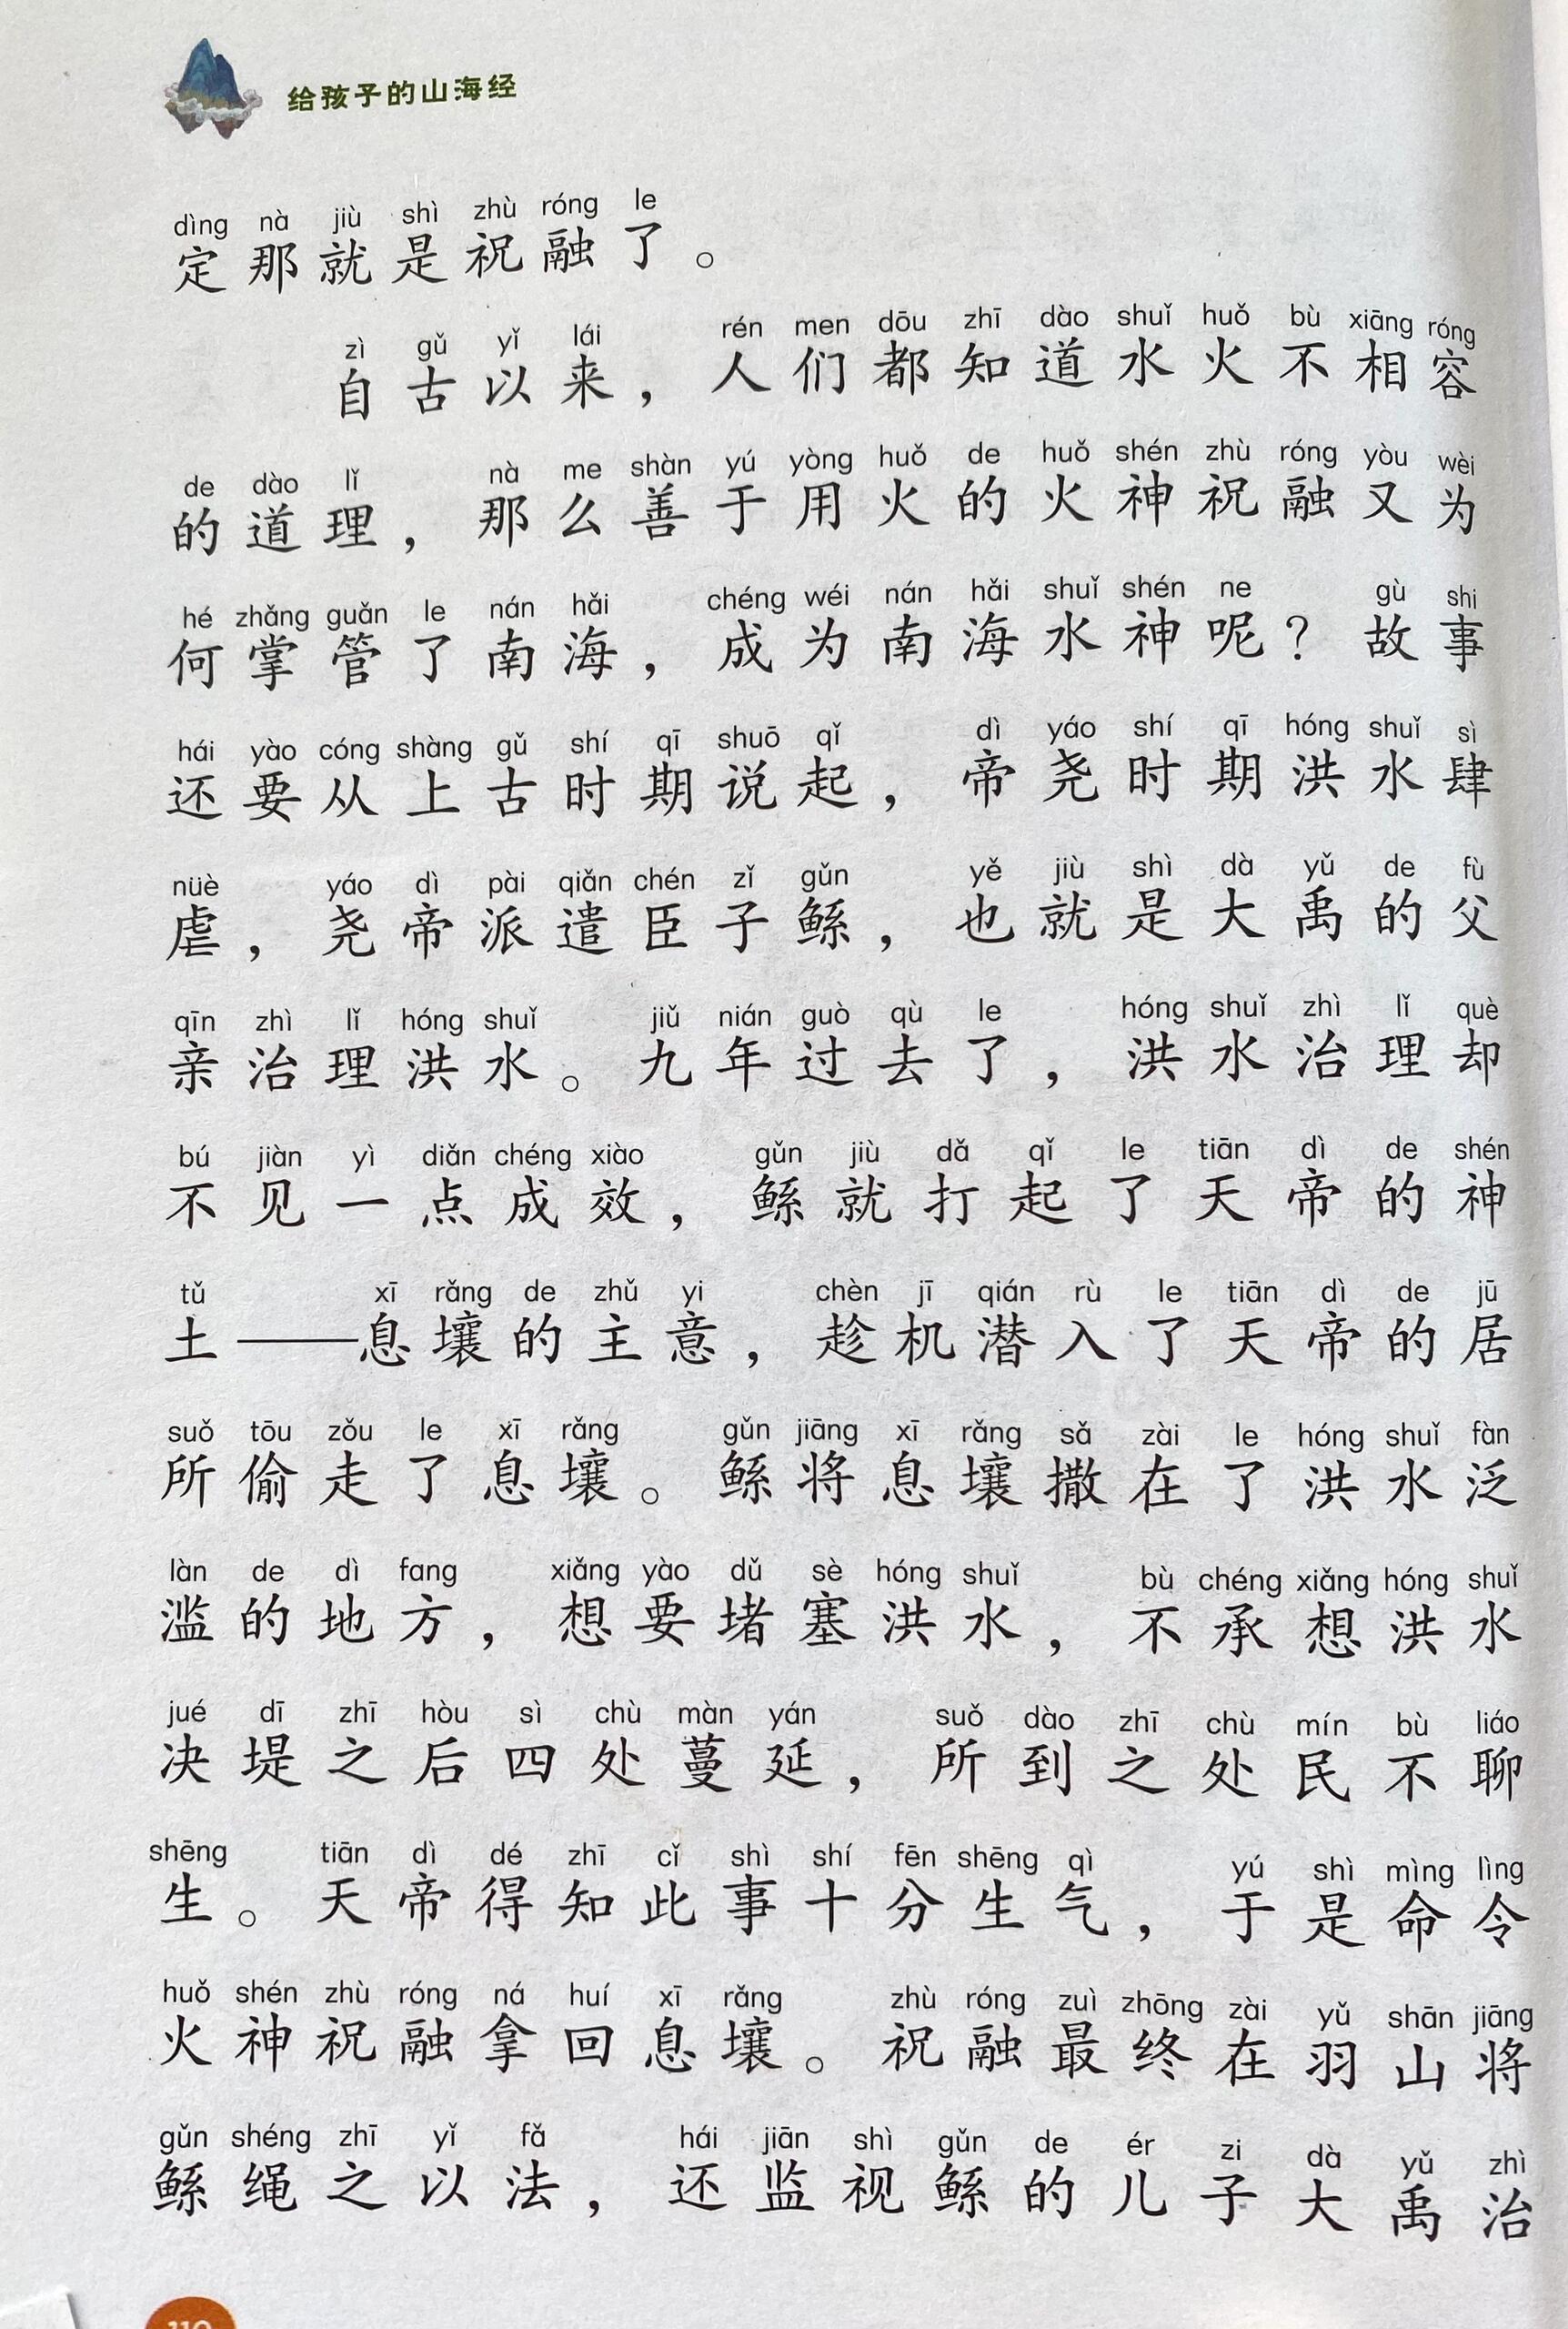 给孩子的山海经
dìng nà jiù shì zhù róng le
定那就是祝融了。
zì gǔ yǐ lái rén men dōu zhī dào shuǐ huǒ bù xiāng róng
自古以来，人们都知道水火不相容
de dào lǐ nà me shàn yú yòng huǒ de huǒ shén zhù róng yòu wèi
的道理，那么善于用火的火神祝融又为
hé zhǎng guǎn le nán hǎi chéng wéi nán hǎi shuǐ shén ne gù shi
何掌管了南海，成为南海水神呢？故事
hái yào cóng shàng gǔ shí qī shuō qǐ dì yáo shí qī hóng shuǐ sì
还要从上古时期说起，帝尧时期洪水肆
nüè yáo dì pài qiǎn chén zǐ gǔn yě jiù shì dà yǔ de fù
虐，尧帝派遣臣子鲧，也就是大禹的父
qīn zhì lǐ hóng shuǐ jiǔ nián guò qù le hóng shuǐ zhì lǐ què
亲治理洪水。九年过去了，洪水治理却
bú jiàn yì diǎn chéng xiào gǔn jiù dǎ qǐ le tiān dì de shén
不见一点成效，鲧就打起了天帝的神
tǔ xī rǎng de zhǔ yi chèn jī qián rù le tiān dì de jū
土——息壤的主意，趁机潜入了天帝的居
suǒ tōu zǒu le xī rǎng gǔn jiāng xī rǎng sǎ zài le hóng shuǐ fàn
所偷走了息壤。鲧将息壤撒在了洪水泛
làn de dì fang xiǎng yào dǔ sè hóng shuǐ bù chéng xiǎng hóng shuǐ
滥的地方，想要堵塞洪水，不承想洪水
jué dī zhī hòu sì chù màn yán suǒ dào zhī chù mín bù liáo
决堤之后四处蔓延，所到之处民不聊
shēng tiān dì dé zhī cǐ shì shí fēn shēng qì yú shì mìng lìng
生。天帝得知此事十分生气，于是命令
huǒ shén zhù róng ná huí xī rǎng zhù róng zuì zhōng zài yǔ shān jiāng
火神祝融拿回息壤。祝融最终在羽山将
gǔn shéng zhī yǐ fǎ hái jiān shì gǔn de ér zi dà yǔ zhì
鲧绳之以法，还监视鲧的儿子大禹治